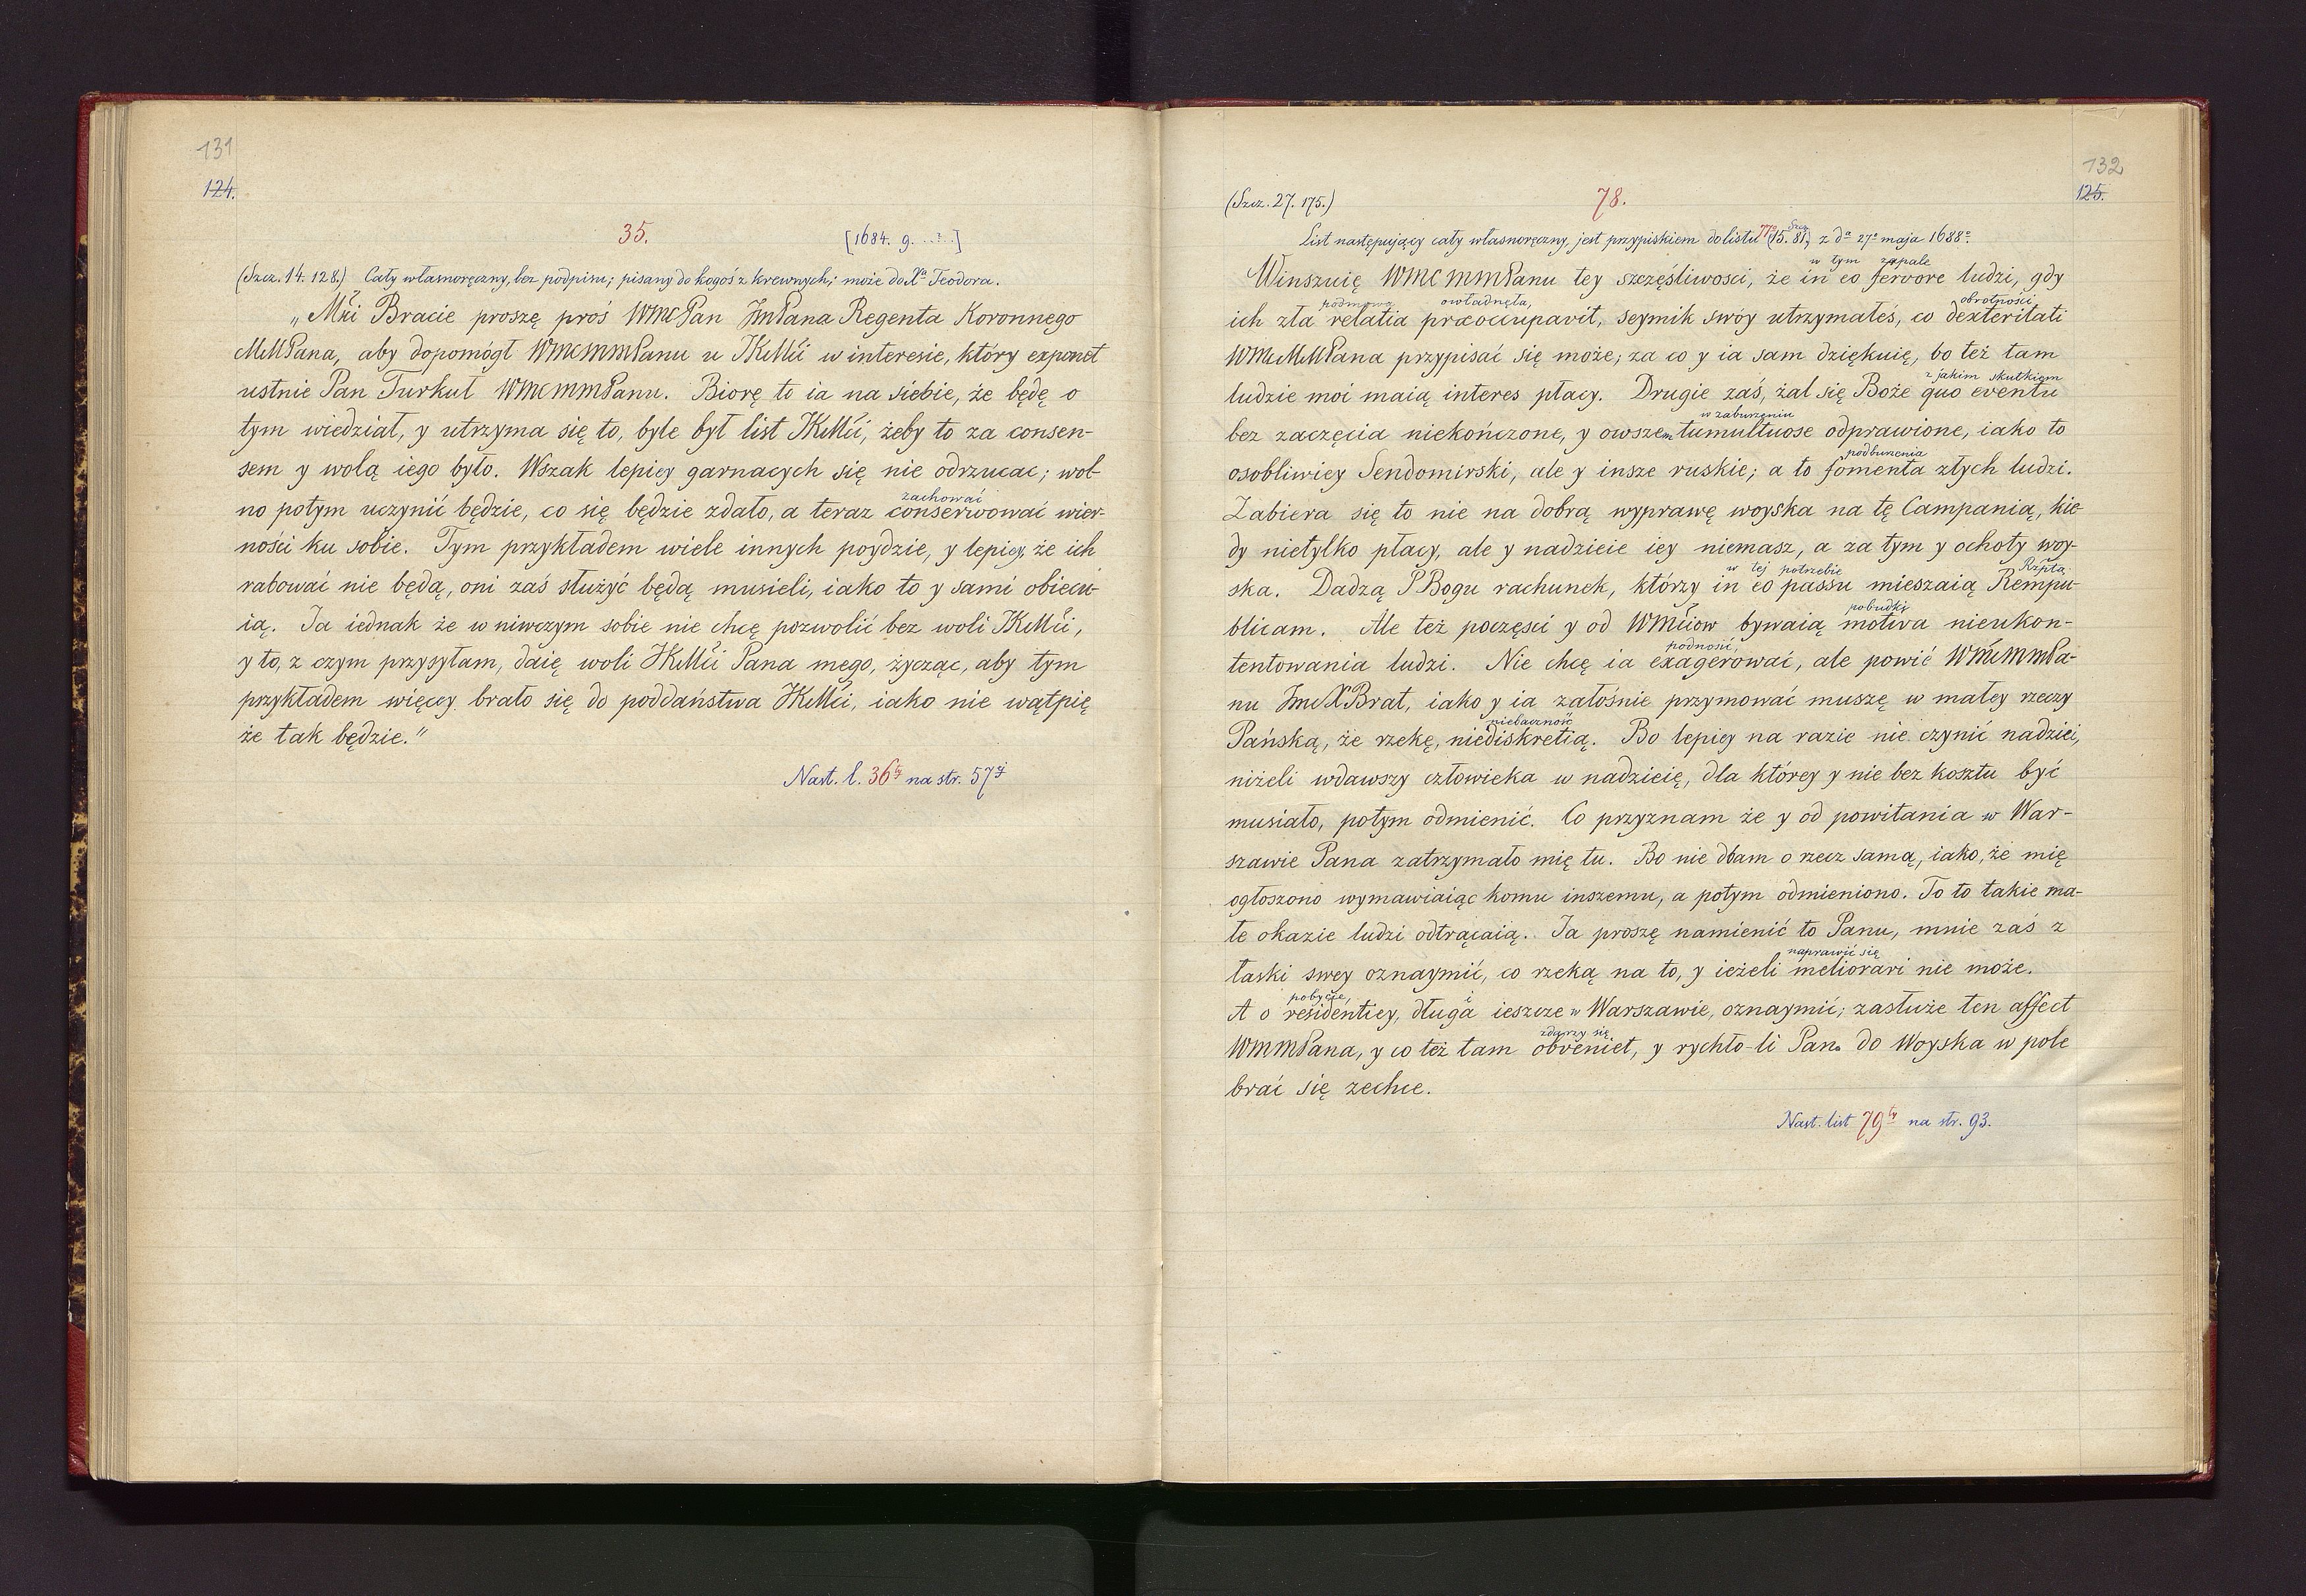 131
124.
35. [1684. 9. ...?..]
(Szcz. 14. 128.) Cały własnoręczny, bez podpisu; pisany do kogoś z krewnych; może do Xa Teodora.
„Mći Bracie proszę proś WMcPan JmPana Regenta Koronnego
MeMPana, aby dopomógł WmcmmPanu u JKeMći w interesie, który exponet
ustnie Pan Turkuł WmcmmPanu. Biorę to ia na siebie, że będę o
tym wiedział, y utrzyma się to, byle był list JKeMći, żeby to za consen-
sem y wolą iego było. Wszak lepiey garnacych się nie odrzucac; wol-
zachować
no potym uczynić będzie, co się będzie zdało, a teraz conserwować wier-
ności ku sobie. Tym przykładem wiele innych poydzie, y lepiey, że ich
rabować nie będą, oni zaś służyć będą musieli, iako to y sami obiecu-
ią. Ja iednak że w niwczym sobie nie chcę pozwolić bez woli JKeMći,
y to, z czym przysyłam, daię woli JKeMći Pana mego, życząc, aby tym
przykładem więcey brało się do poddaństwa JKeMći, iako nie wątpię
że tak będzie."
Nast. l. 36ty na str. 57ej
132
125.
(Szcz. 27. 175.) 78.
List następujący cały własnoręczny, jest przypiskiem do listu 77o (Szcz. 15. 81) z da 27o maja 1688o.
w tym zapale
Winszuię WMC MMPanu tey szczęśliwosci, że in eo fervore ludzi, gdy
podmowa owładnęła, obrotności
ich zła relatia præoccupavit, seymik swóy utrzymałeś, co dexteritati
WMcMMPana przypisać się może; za co y ia sam dziękuię, bo też tam
z jakim skutkiem
ludzie moi maią interes płacy. Drugie zaś, żal się Boże quo eventu
w zaburzeniu
bez zaczęcia niekończone, y owszem tumultuose odprawione, iako to
podburzenia
osobliwiey Sendomirski, ale y insze ruskie; a to fomenta złych ludzi.
Zabiera się to nie na dobrą wyprawę woyska na tę Campanią, kie-
dy nietylko płacy, ale y nadzieie iey niemasz, a za tym y ochoty woy-
w tej potrzebie Rzptą
ska. Dadzą P Bogu rachunek, którzy in eo passu mieszaią Rempu-
pobudki
blicam. Ale też poczęsci y od WMćiow bywaią motiva nieukon-
podnosić,
tentowania ludzi. Nie chcę ia exagerować, ale powić WMćMMPa-
nu JmcXBrat, iako y ia załośnie przymować muszę w małey rzeczy
niebaczność
Pańską, że rzekę, niediskretią. Bo lepiey na razie nie czynić nadziei,
niżeli wdawszy człowieka w nadzieię, dla którey y nie bez kosztu być
musiało, potym odmienić. Co przyznam że y od powitania w War-
szawie Pana zatrzymało mię tu. Bo nie dbam o rzecz samą, iako, że mię
ogłoszono wymawiaiąc komu inszemu, a potym odmieniono. To to takie ma-
łe okazie ludzi odtrącaią. Ja proszę namienić to Panu, mnie zaś z
naprawić się
łaski swey oznaymić, co rzeką na to, y ieżeli meliorari nie może.
pobycie, i
A o residentiey, długa ieszcze w Warszawie, oznaymić; zasłuże ten affect
zdarzy się
WMMPana, y co też tam obveniet, y rychło-li Pan do Woyska w pole
brać się zechce.
Nast. list 79ty na str. 93.